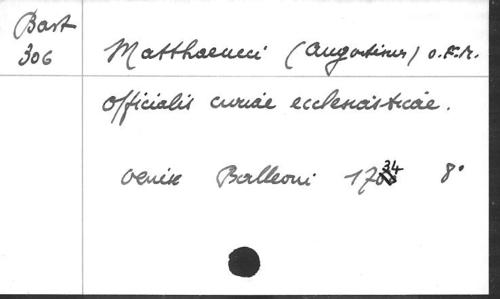 Bast
306
Matthaeucci (Augustinus) O.F.M.
Officialis curiae ecclesiasticae.
Venise Balleoni 1734 8°